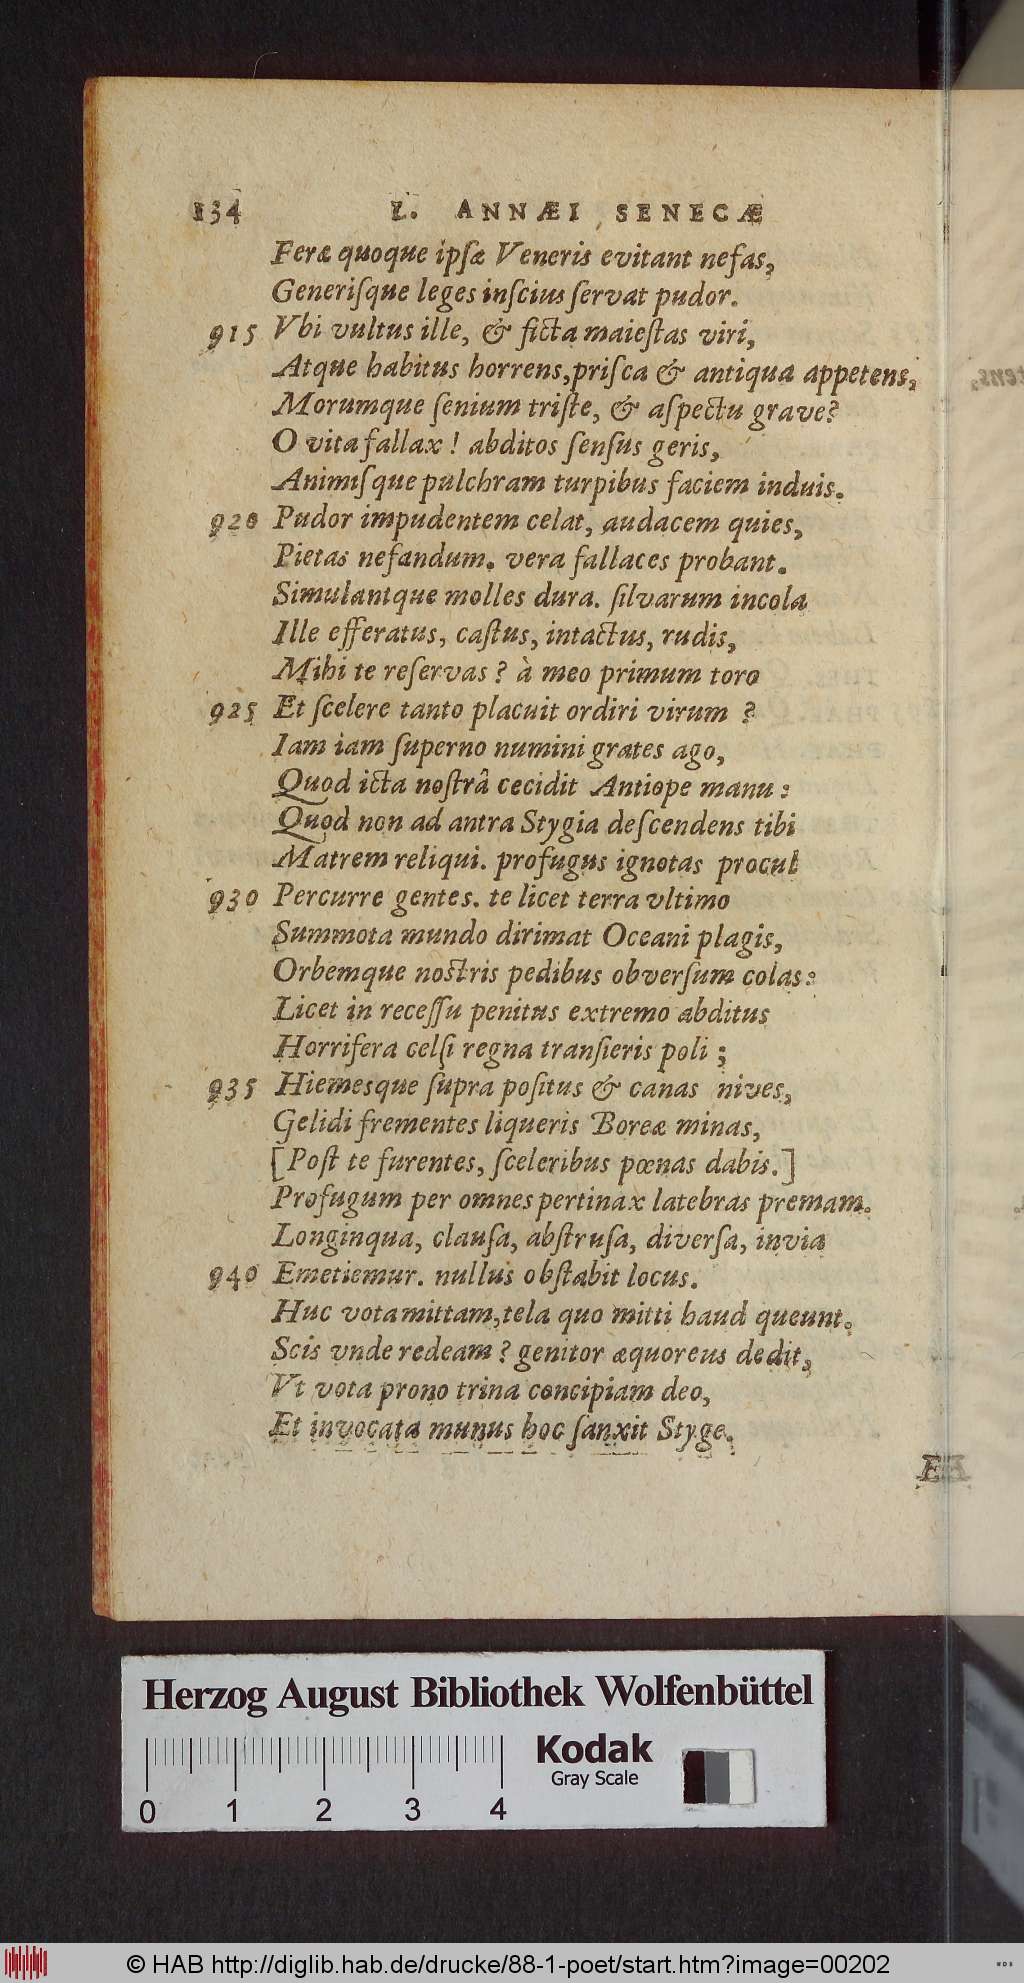 134 L. ANNÆI SENECÆ
Feræ quoque ipſæ Veneris evitant nefas,
Generiſque leges inſcius ſervat pudor.
915 Vbi vultus ille, & ficta maieſtas viri,
Atque habitus horrens, priſca & antiqua appetens,
Morumque ſenium triſte, & aſpectu grave?
O vita fallax! abditos ſenſus geris,
Animiſque pulchram turpibus faciem induis.
920 Pudor impudentem celat, audacem quies,
Pietas nefandum. vera fallaces probant.
Simulantque molles dura. ſilvarum incola
Ille efferatus, caſtus, intactus, rudis,
Mihi te reſervas? à meo primum toro
925 Et ſcelere tanto placuit ordiri virum?
Iam iam ſuperno numini grates ago,
Quod icta noſtrâ cecidit Antiope manu:
Quod non ad antra Stygia deſcendens tibi
Matrem reliqui. profugus ignotas procul
930 Percurre gentes. te licet terra vltimo
Summota mundo dirimat Oceani plagis,
Orbemque noſtris pedibus obverſum colas:
Licet in receſſu penitus extremo abditus
Horrifera celſi regna tranſieris poli;
935 Hiemesque ſupra poſitus & canas nives,
Gelidi frementes liqueris Boreæ minas,
[Poſt te furentes, ſceleribus pœnas dabis.]
Profugum per omnes pertinax latebras premam.
Longinqua, clauſa, abſtruſa, diverſa, invia
940 Emetiemur. nullus obſtabit locus.
Huc vota mittam, tela quo mitti haud queunt.
Scis vnde redeam? genitor æquoreus dedit,
Vt vota prono trina concipiam deo,
Et invocata munus hoc ſanxit Styge.
Herzog August Bibliothek Wolfenbüttel
Kodak
Gray Scale
0 1 2 3 4
© HAB http://diglib.hab.de/drucke/88-1-poet/start.htm?image=00202